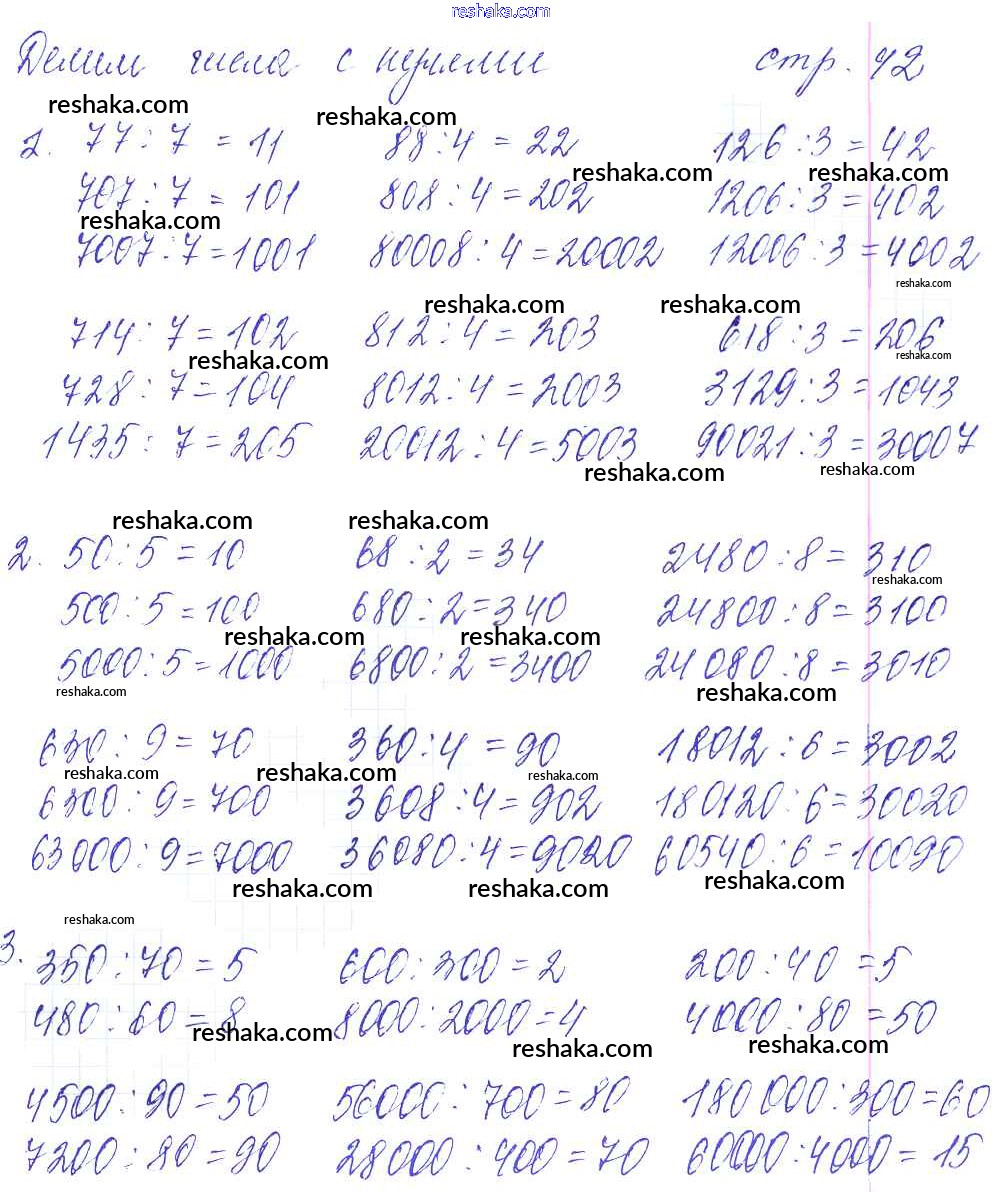 reshaka.com
Делим числа с нулями стр. 42
reshaka.com reshaka.com
1. 77 : 7 = 11 88 : 4 = 22 126 : 3 = 42
reshaka.com reshaka.com
707 : 7 = 101 808 : 4 = 202 1206 : 3 = 402
reshaka.com
7007 : 7 = 1001 80008 : 4 = 20002 12006 : 3 = 4002
reshaka.com
reshaka.com reshaka.com
714 : 7 = 102 812 : 4 = 203 618 : 3 = 206
reshaka.com reshaka.com
728 : 7 = 104 8012 : 4 = 2003 3129 : 3 = 1043
1435 : 7 = 205 20012 : 4 = 5003 90021 : 3 = 30007
reshaka.com reshaka.com
reshaka.com reshaka.com
2. 50 : 5 = 10 68 : 2 = 34 2480 : 8 = 310
reshaka.com
500 : 5 = 100 680 : 2 = 340 24800 : 8 = 3100
reshaka.com reshaka.com
5000 : 5 = 1000 6800 : 2 = 3400 24080 : 8 = 3010
reshaka.com reshaka.com
630 : 9 = 70 360 : 4 = 90 18012 : 6 = 3002
reshaka.com reshaka.com reshaka.com
6300 : 9 = 700 3608 : 4 = 902 180120 : 6 = 30020
63000 : 9 = 7000 36080 : 4 = 9020 60540 : 6 = 10090
reshaka.com reshaka.com reshaka.com
reshaka.com
3. 350 : 70 = 5 600 : 300 = 2 200 : 40 = 5
480 : 60 = 8 8000 : 2000 = 4 4000 : 80 = 50
reshaka.com reshaka.com reshaka.com
4500 : 90 = 50 56000 : 700 = 80 180 000 : 300 = 60
7200 : 80 = 90 28000 : 400 = 70 60000 : 4000 = 15